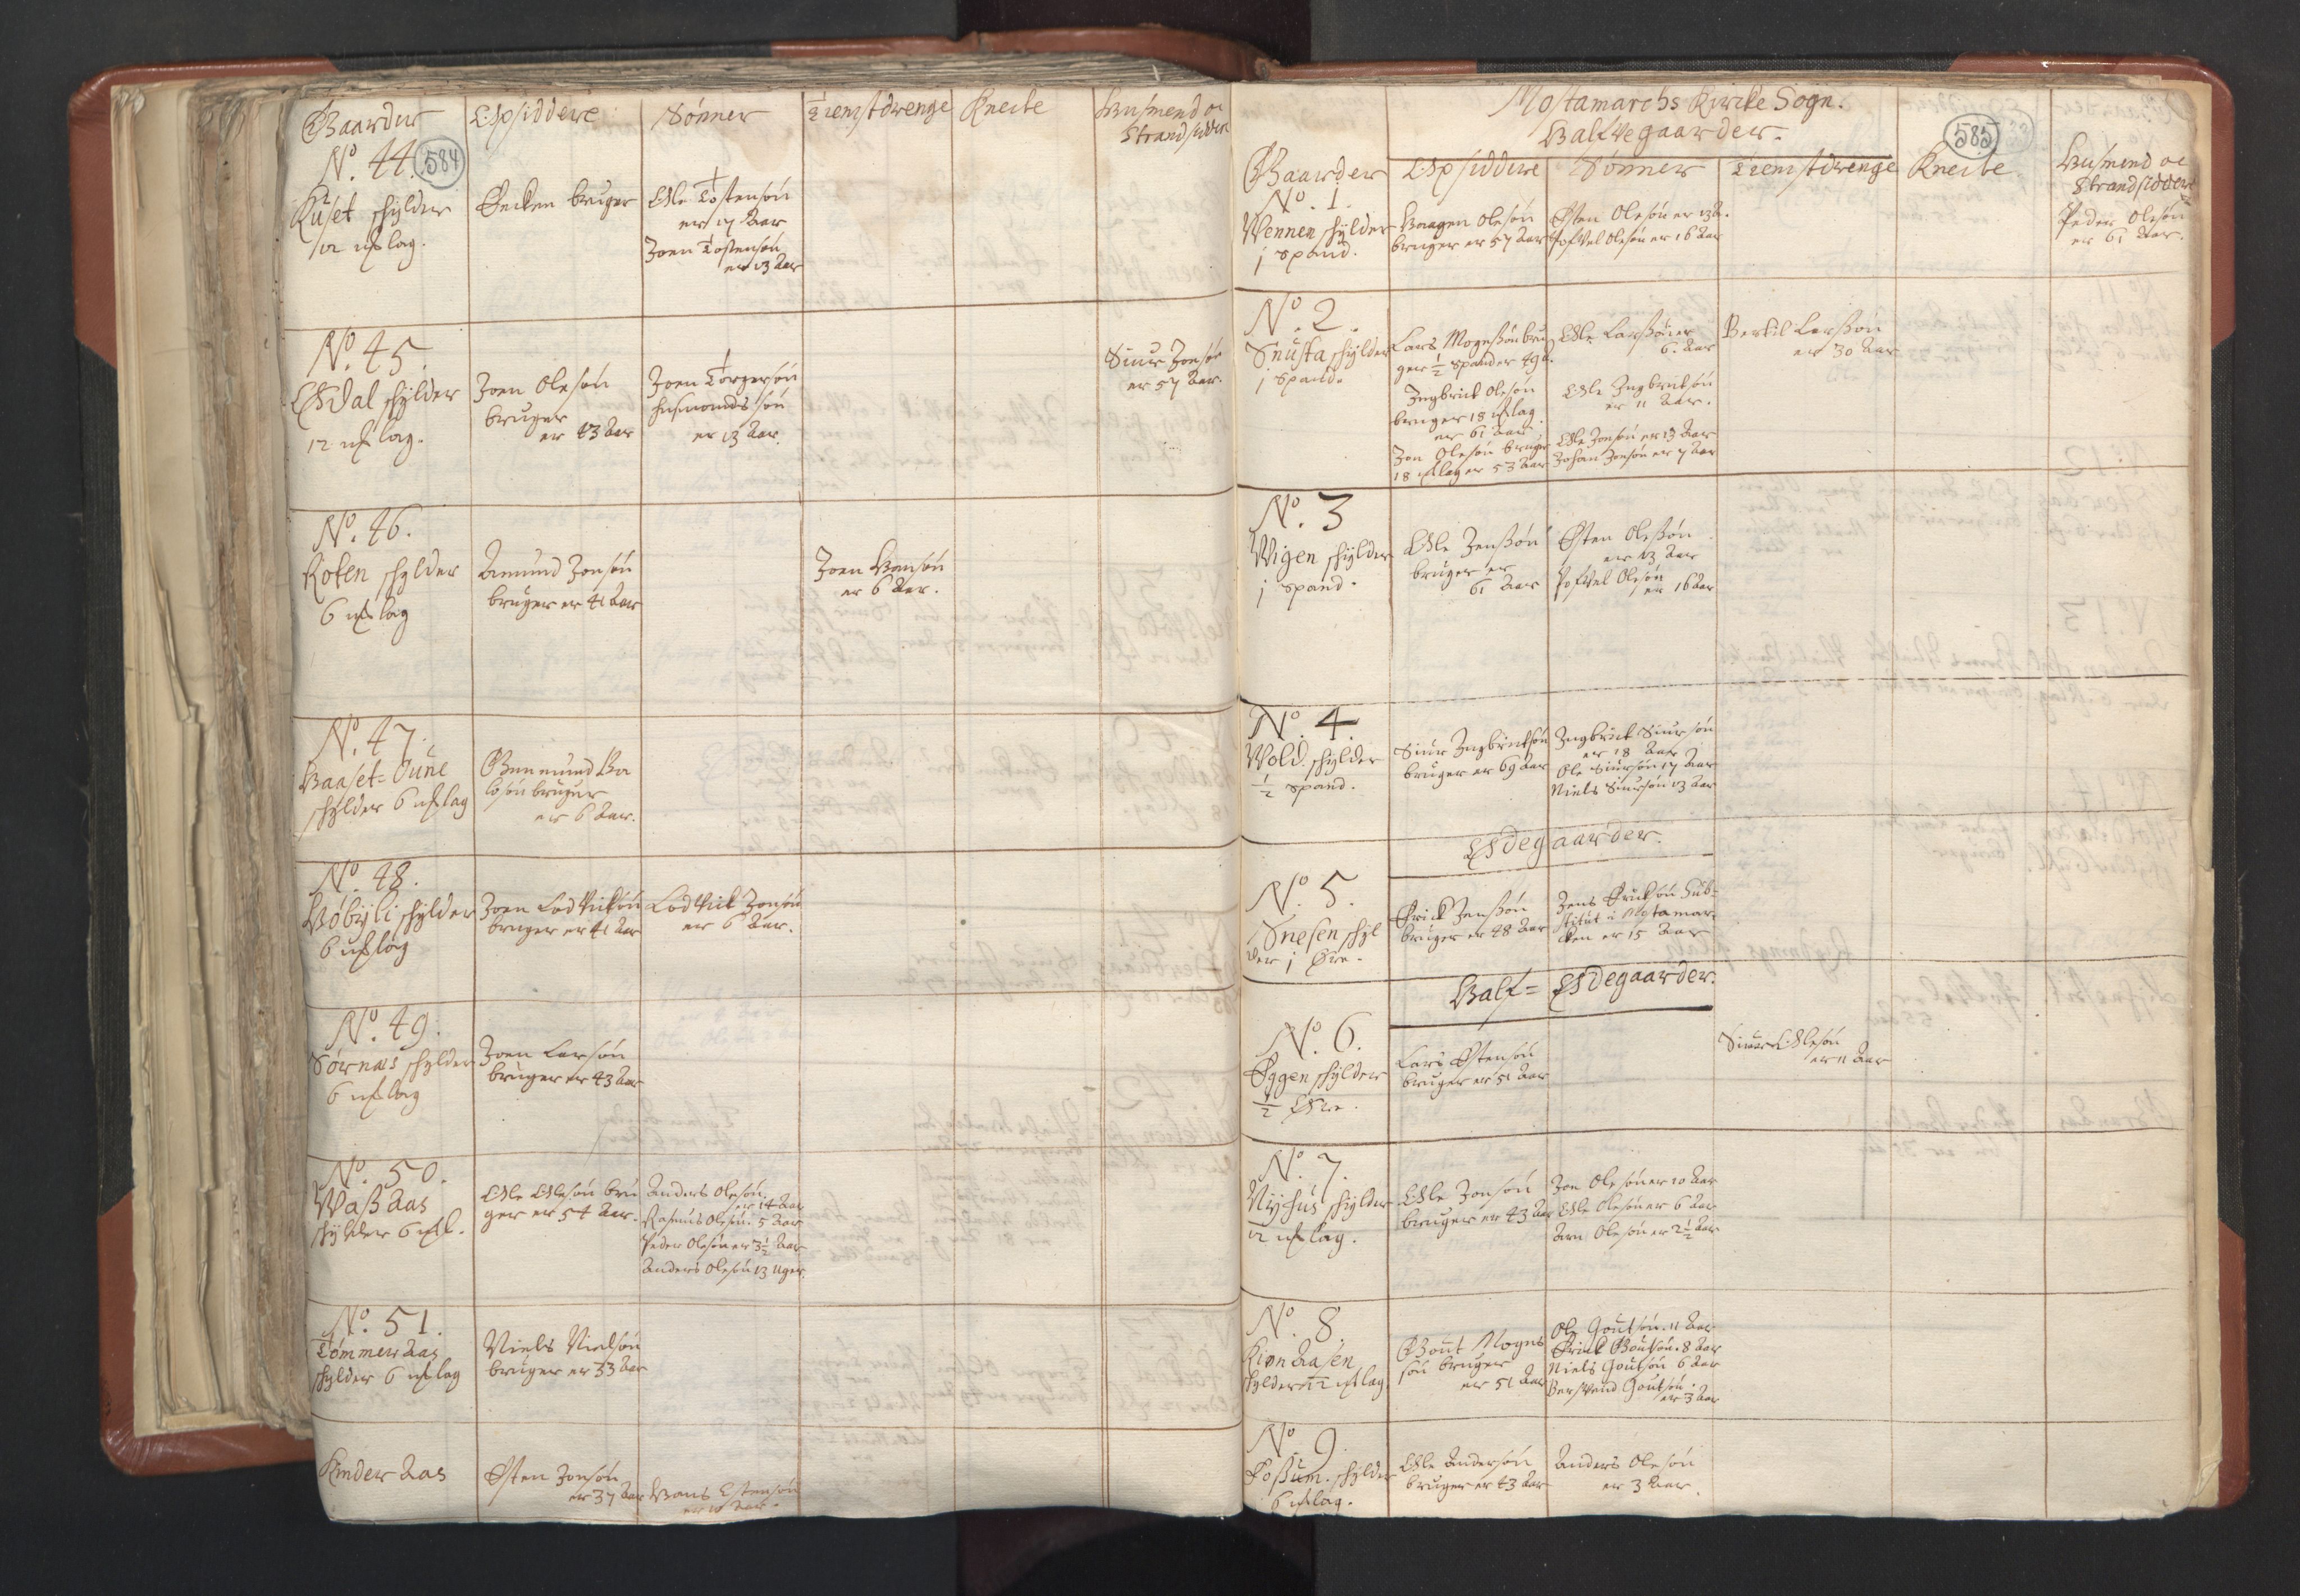 Gaarder
Opsiddere
Sønner
Tienistdrenge
Knecte
Husmend oc
Strandsidder
584
No. 44.
Kuset skylder
12 uslag.
Encken bruger
Ole Tostensøn
er 17 Aar
Joen Tostensøn
er 13 Aar
No. 45.
Ødal skylder
12 uslag.
Joen Olesøn
bruger
er 43 Aar
Joen Torgersøn
husmands søn
er 13 Aar.
Siur Jonsøn
er 57 Aar.
No. 46.
Roten skylder
6 uslag
Amund Jonsøn
bruger er 41 Aar
Joen Hansøn
er 6 Aar.
No. 47.
Haaset=Oune
skylder 6 uslag
Gunmund
bruger
er 6 Aar.
No. 48.
Høbyli skylder
6 uslag
Joen Lodvicksøn
bruger er 41 Aar
Lodvick Jonsøn
er 6 Aar.
No. 49.
Sørnæs skylder
6 uslag
Joen Larsøn
bruger er 43 Aar
No. 50.
Waßaas
skylder 6 usl.
Ole Olesøn bru
ger er 54 Aar.
Anders Olesøn
er 14 Aar
Rasmus Olesøn. 5 Aar
Peder Olesøn er 3½ Aar
Anders Olesøn 13 uger.
No. 51.
Tømmeraas
skylder 6 uslag
Niels Nielsøn
bruger er 33 Aar
Kinderaas
Østen Jonsøn
er 37 Aar
Hans Estensøn
er 10 Aar.
Mostamarchs Kircke Sogn.
Halfvegaarder.
585
Gaarder
Opsiddere
Sønner
Tienistdrenge
Knecte
Husmend oc
Strandsiddere
No. 1.
Wennen skylder
j spand.
Haagen Olesøn
bruger er 57 Aar
Østen Olesøn er 13 A.
Pofvel Olesøn er 16 Aar
Peder Olesøn
er 61 Aar.
No. 2.
Snusta skylder
j spand.
Lars Mogenßøn bru
ger ½ spand er 49 A.
Ingbrict Olesøn
bruger 18 uslag
er 61 Aar
Jon Olesøn bruger
18 uslag er 53 Aar
Ole Larßøn er
6. Aar
Ole Ingbrictsøn
er 11 Aar.
Ole Jonsøn er 13 Aar
Johan Jonsøn er 7 Aar
Bertil Larßøn
er 30 Aar
No. 3
Wigen skylder
j spand.
Ole Jenßøn
bruger er
61 Aar
Østen Oleßøn
er 13 Aar
Pofvel Olesøn
er 16 Aar
No. 4.
Wold skylder
½ spand.
Siur Ingbrictsøn
bruger er 69 Aar
Ingbrict Siursøn
er 18 Aar
Ole Siursøn 17 Aar
Niels Siursøn 13 Aar
Ødegaarder.
No. 5.
Snesen skyl
der j Øre.
Erick Jenßøn
bruger er 48 Aar
Jens Ericksøn Sub-
stitut i Mostamar-
cken er 15 Aar
Half= Ødegaarder.
No. 6.
Eggen skylder
½ Øre.
Lars Østensøn
bruger er 51 Aar
Siur Olesøn
er 11 Aar
No. 7.
Nyhus skylder
12 uslag.
Ole Jonsøn
bruger er 43 Aar
Jon Olesøn er 10 Aar
Ole Olesøn er 6 Aar
Arn Olesøn er 2½ Aar
No. 8.
Kionaasen
skylder 12 uslag.
Gout Mogens
søn bruger
er 51 Aar
Ole Goutsøn. 11 Aar
Erick Goutsøn. 8 Aar
Niels Goutsøn 6 Aar
Bersvend Goutsøn
er 3 Aar
No. 9.
Foßum. skylder
6 uslag.
Ole Andersøn
bruger er 43 Aar
Anders Olesøn
er 3 Aar.